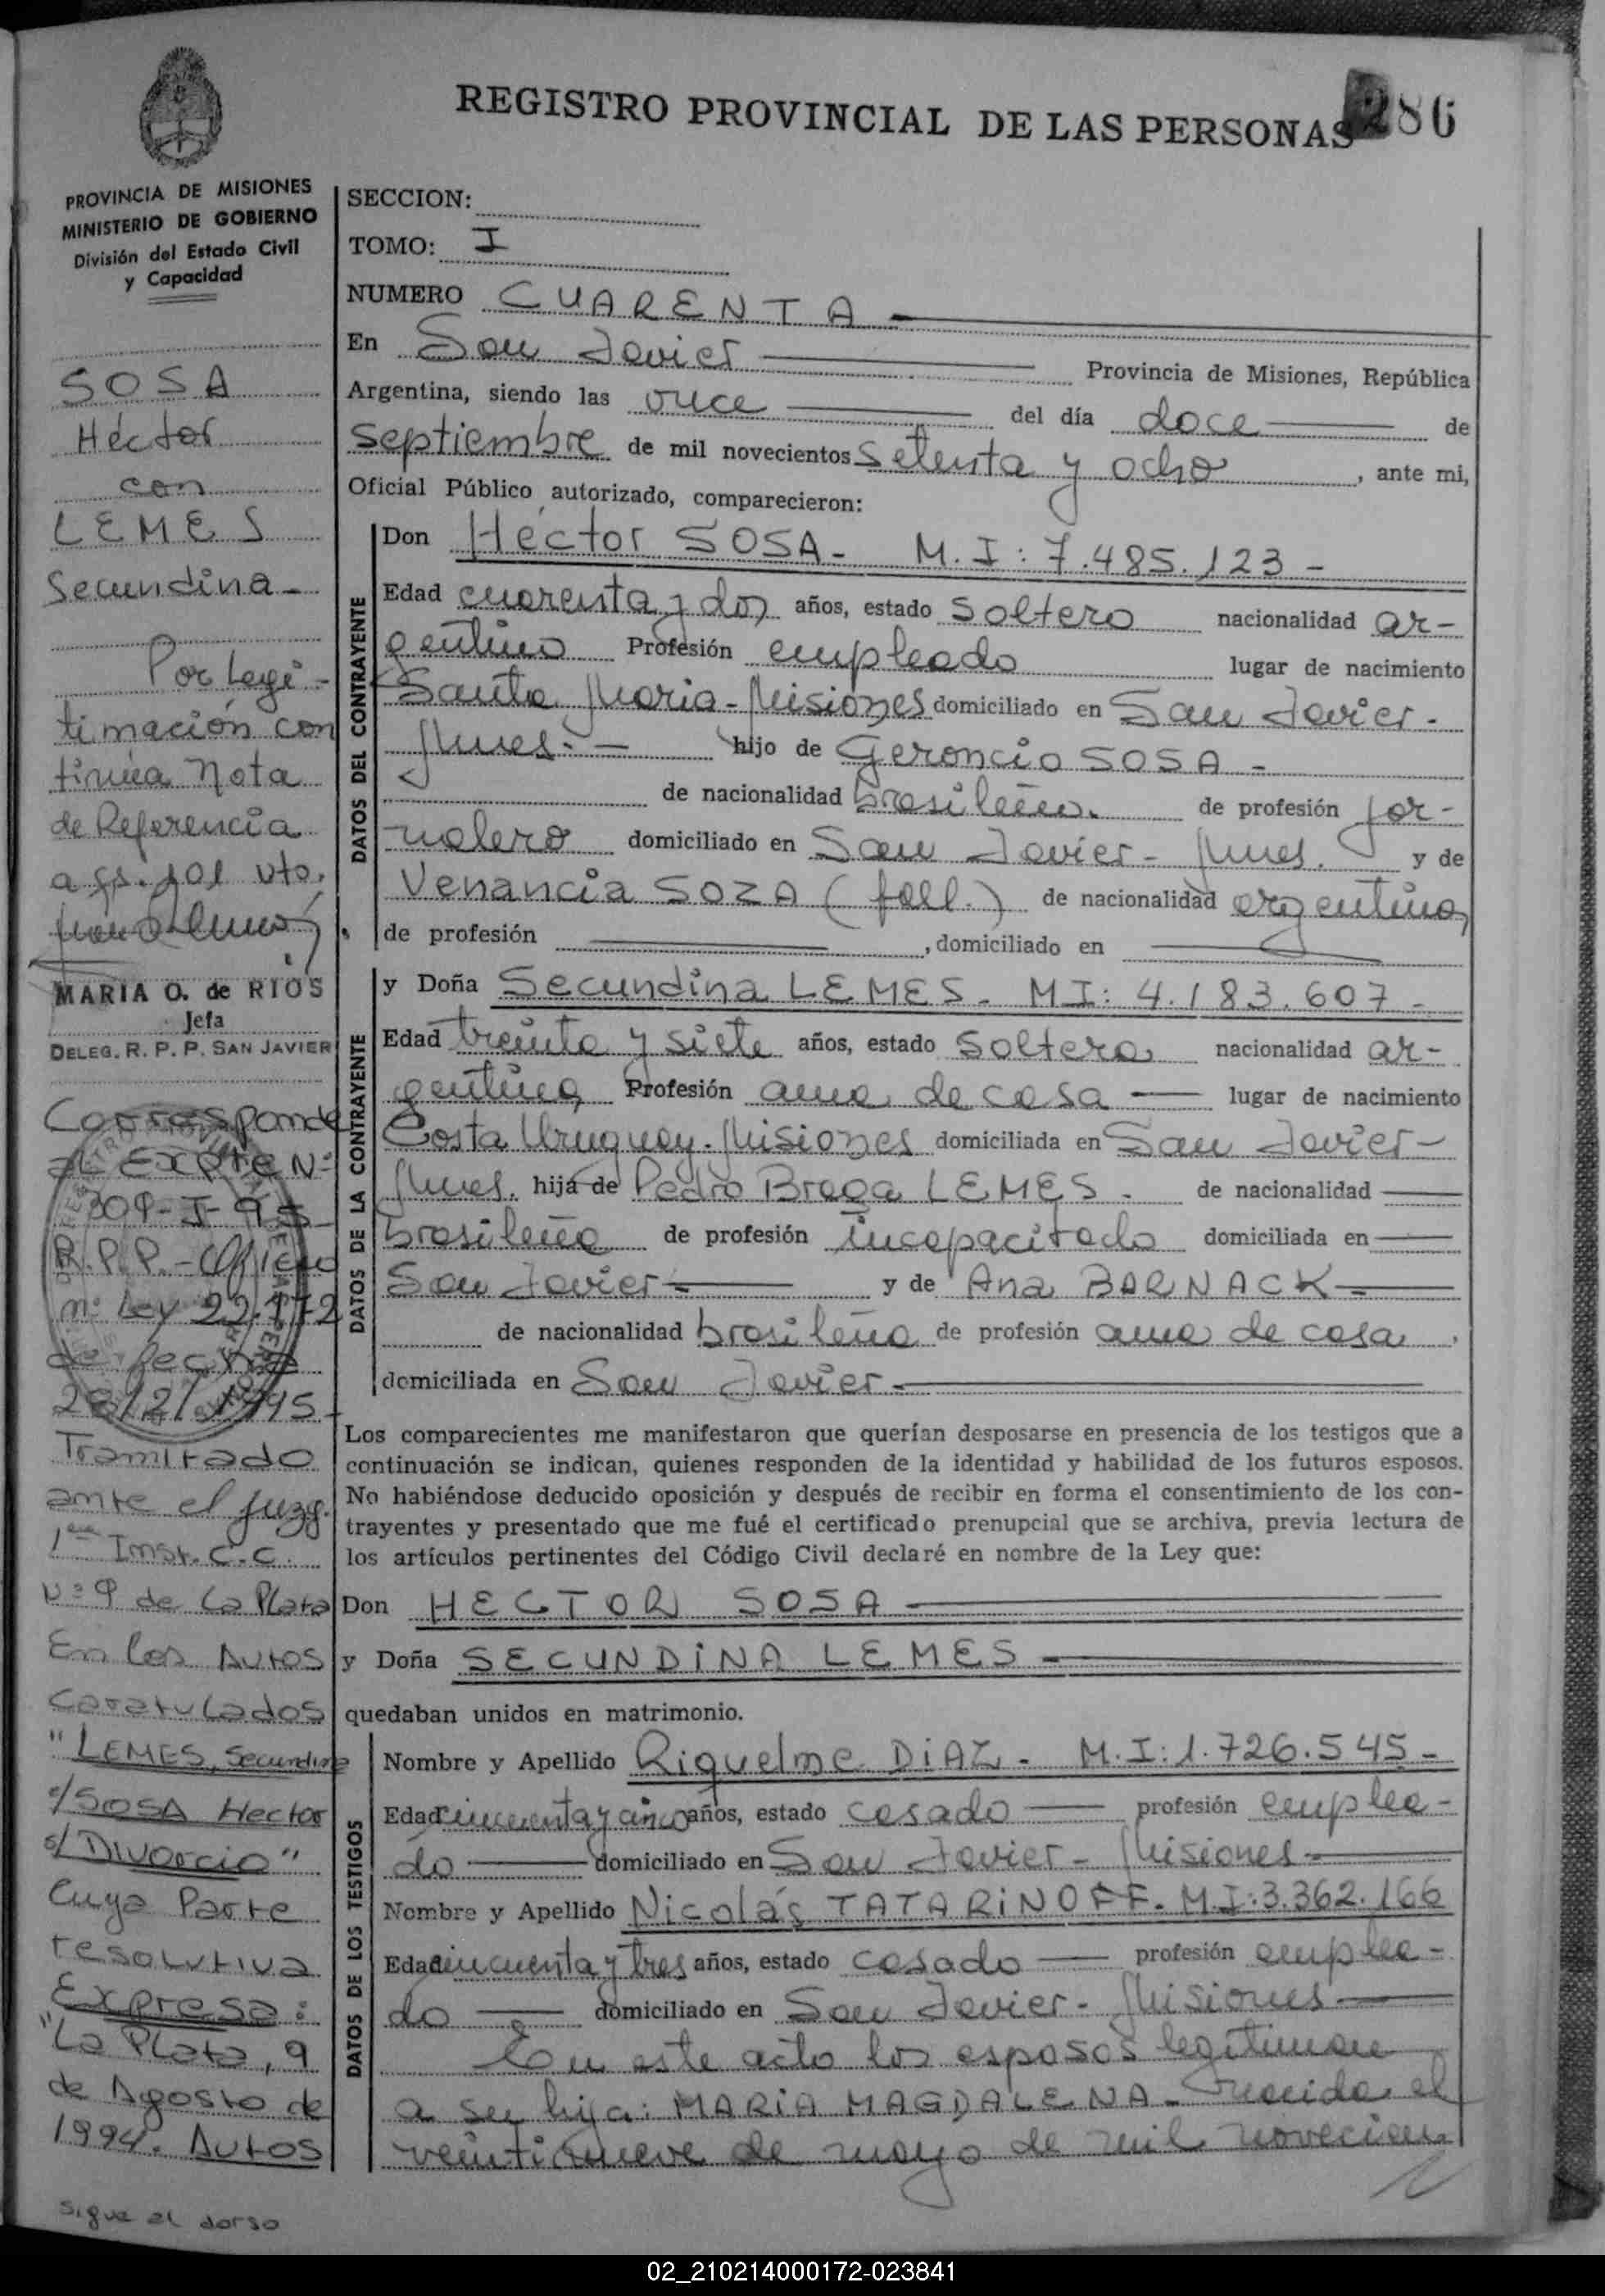 REGISTRO PROVINCIAL DE LAS PERSONAS
286
PROVINCIA DE MISIONES
MINISTERIO DE GOBIERNO
División del Estado Civil
y Capacidad
SOSA
Héctor
con
LEMES
Secundina-
Por Legi-
timación con
tinúa Nota
de Referencia
a fs. 101 vto.
MARIA O. de RIOS
Jefa
DELEG. R. P. P. SAN JAVIER
Corresponde
al Expte Nº
309-I-95-
R.P.P.-Oficio
nº Ley 22.172
de fecha
20/2/1995-
Tramitado
ante el Juzg.
1era Inst. C.C.
Nº 9 de La Plata
En los Autos
Caratulados
"LEMES, Secundina
c/SOSA Hector
s/DIVORCIO"
Cuya Parte
resolutiva
Expresa:
"La Plata, 9
de Agosto de
1994. Autos
Sigue al dorso
SECCION:
TOMO: I
NUMERO CUARENTA
En San Javier Provincia de Misiones, República
Argentina, siendo las once del día doce de
septiembre de mil novecientos setenta y ocho, ante mi,
Oficial Público autorizado, comparecieron:
DATOS DEL CONTRAYENTE
Don Héctor SOSA- M.I: 7.485.123-
Edad cuarenta y dos años, estado soltero nacionalidad ar-
gentino Profesión empleado lugar de nacimiento
Santa María-Misiones domiciliado en San Javier-
Mnes.- hijo de Geroncio SOSA-
de nacionalidad brasileño. de profesión jor-
nalero domiciliado en San Javier- Mnes. y de
Venancia SOZA (fall.) de nacionalidad argentina,
de profesión , domiciliado en
DATOS DE LA CONTRAYENTE
y Doña Secundina LEMES- MI: 4.183.607-
Edad treinta y siete años, estado soltera nacionalidad ar-
gentina Profesión ama de casa lugar de nacimiento
Costa Uruguay-Misiones domiciliada en San Javier-
Mnes. hija de Pedro Braga LEMES- de nacionalidad
brasileña de profesión incapacitado domiciliada en
San Javier- y de Ana BARNACK-
de nacionalidad brasileña de profesión ama de casa,
domiciliada en San Javier-
Los comparecientes me manifestaron que querían desposarse en presencia de los testigos que a
continuación se indican, quienes responden de la identidad y habilidad de los futuros esposos.
No habiéndose deducido oposición y después de recibir en forma el consentimiento de los con-
trayentes y presentado que me fué el certificado prenupcial que se archiva, previa lectura de
los artículos pertinentes del Código Civil declaré en nombre de la Ley que:
Don HECTOR SOSA
y Doña SECUNDINA LEMES-
quedaban unidos en matrimonio.
DATOS DE LOS TESTIGOS
Nombre y Apellido Riquelme DIAZ- M.I: 1.726.545-
Edad cincuenta y cinco años, estado casado profesión emplea-
do domiciliado en San Javier- Misiones-
Nombre y Apellido Nicolás TATARINOFF- M.I: 3.362.166
Edad cincuenta y tres años, estado casado profesión emplea-
do domiciliado en San Javier- Misiones
En este acto los esposos legitiman
a su hija: MARIA MAGDALENA- nacida el
veintinueve de mayo de mil novecien
02_210214000172-023841